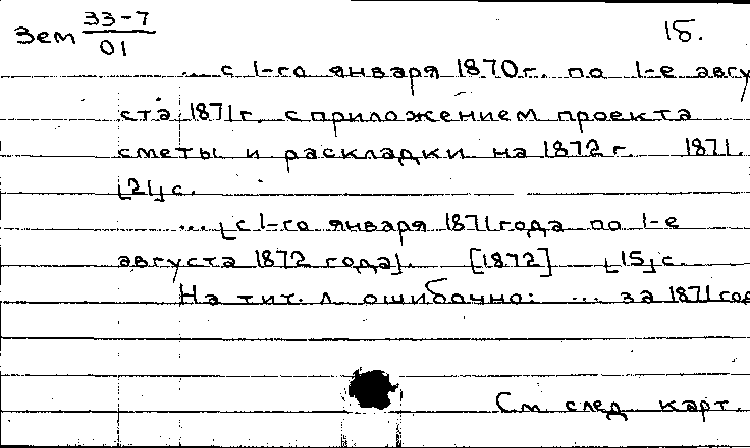 Зем 33-7/01 1б.
... с 1-го января 1870г. по 1-е авгу
ста 1871г. с приложением проекта
сметы и раскладки на 1872г. 1871.
[21] с.
... [с 1-го января 1871года по 1-е
августа 1872 года]. [1872] [15] с.
На тит. л. ошибочно: ... за 1871 год
См след карт.